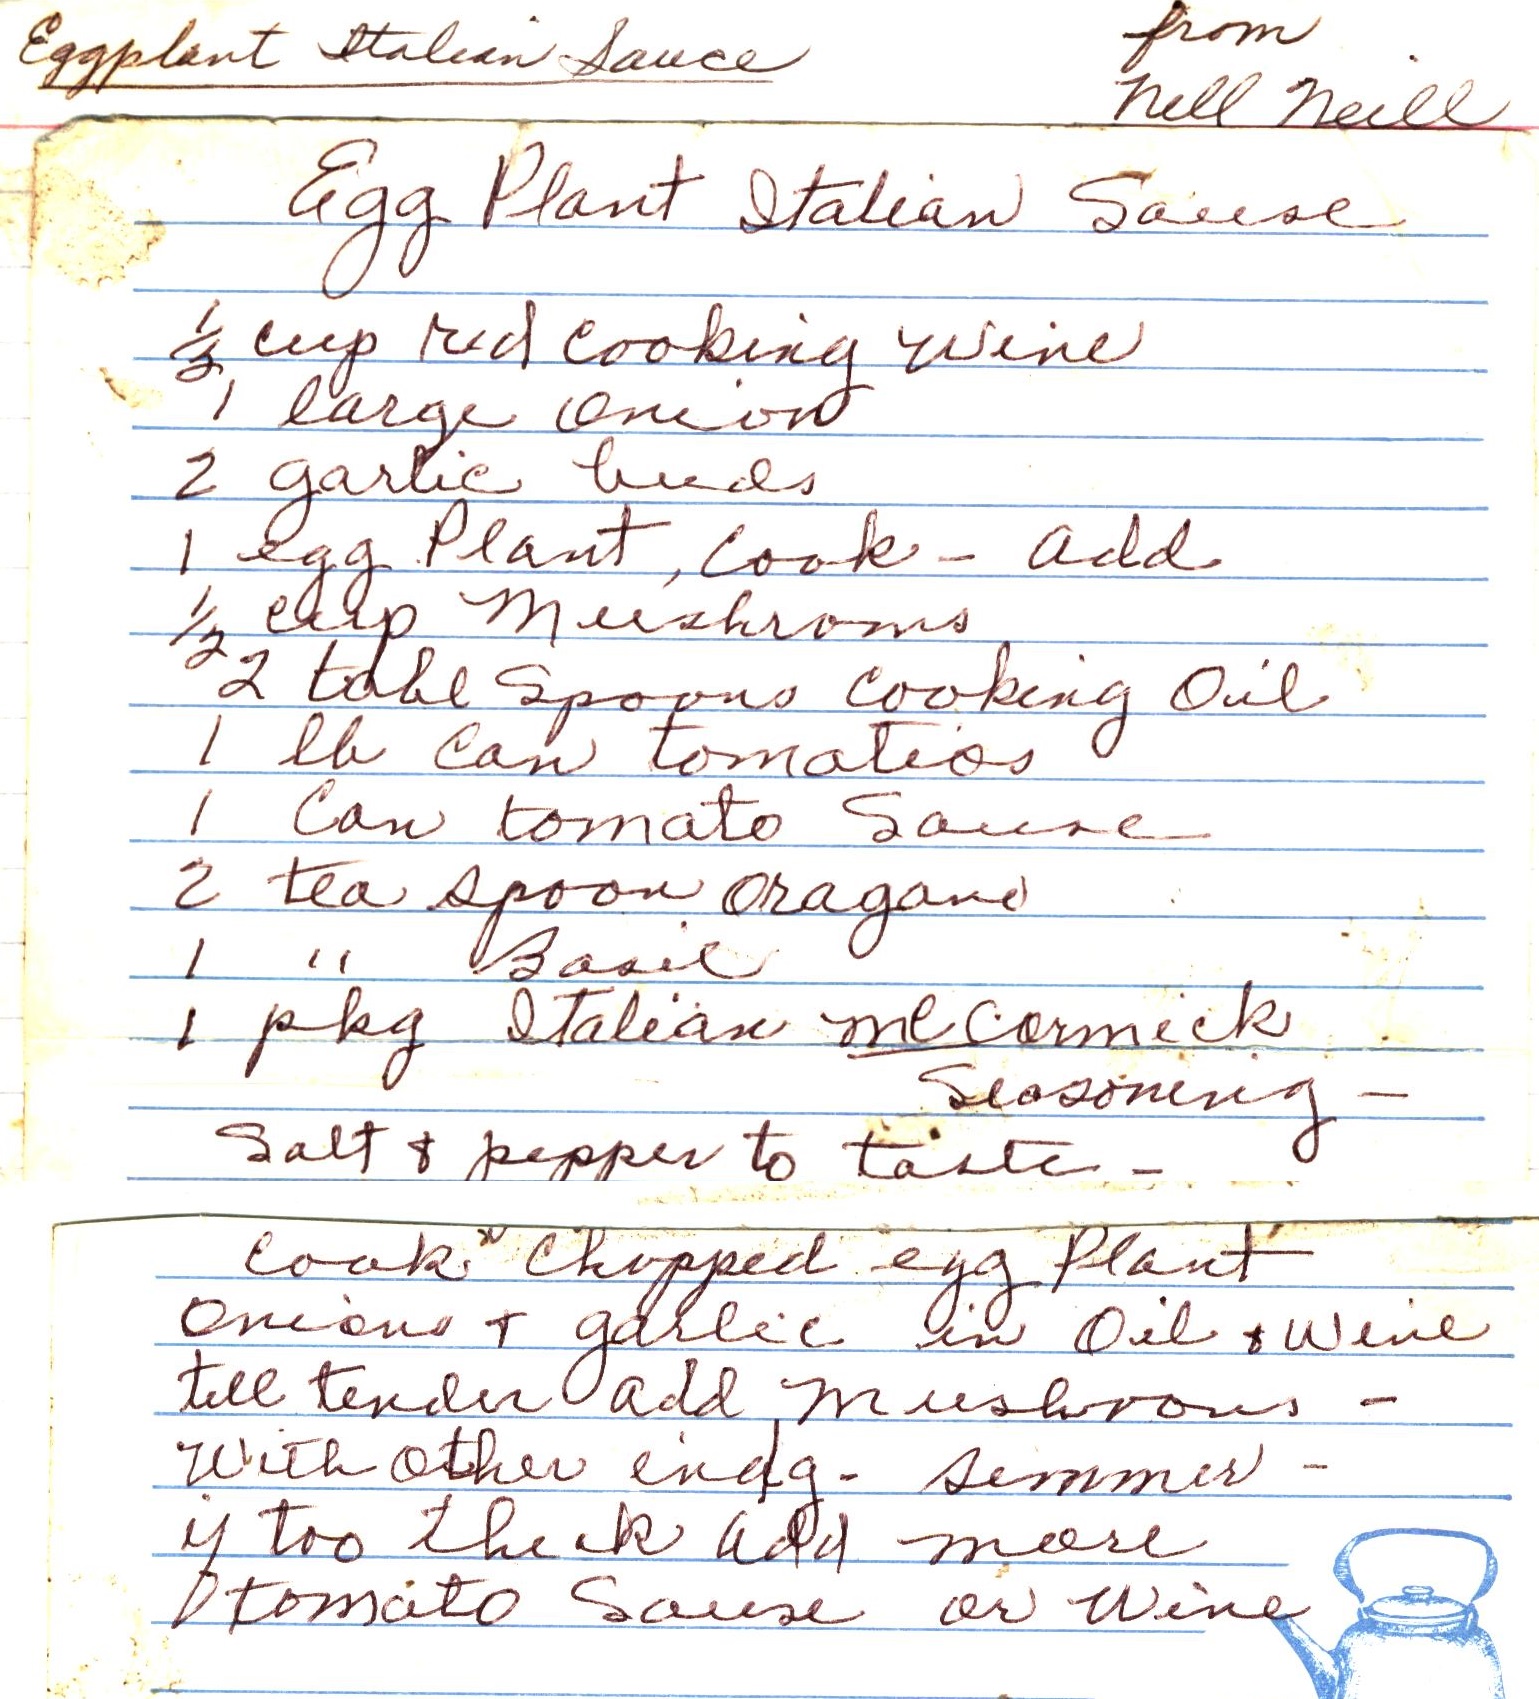 Eggplant Italian Sauce
from
Nell Neill
Egg Plant Italian Sause
1/2 cup red cooking wine
1 large onion
2 garlic buds
1 egg Plant, Cook - add
1/2 cup Mushroms
2 tabl Spoons cooking Oil
1 lb Can tomatios
1 Can tomato Sause
2 tea spoon oragano
1 " Basil
1 pkg Italian McCormick
Seasoning -
Salt & pepper to taste -
Cook Chopped egg Plant
onions & garlic in Oil & wine
till tender add Mushroms -
With other indg - simmer -
if too thick add more
tomato Sause or Wine